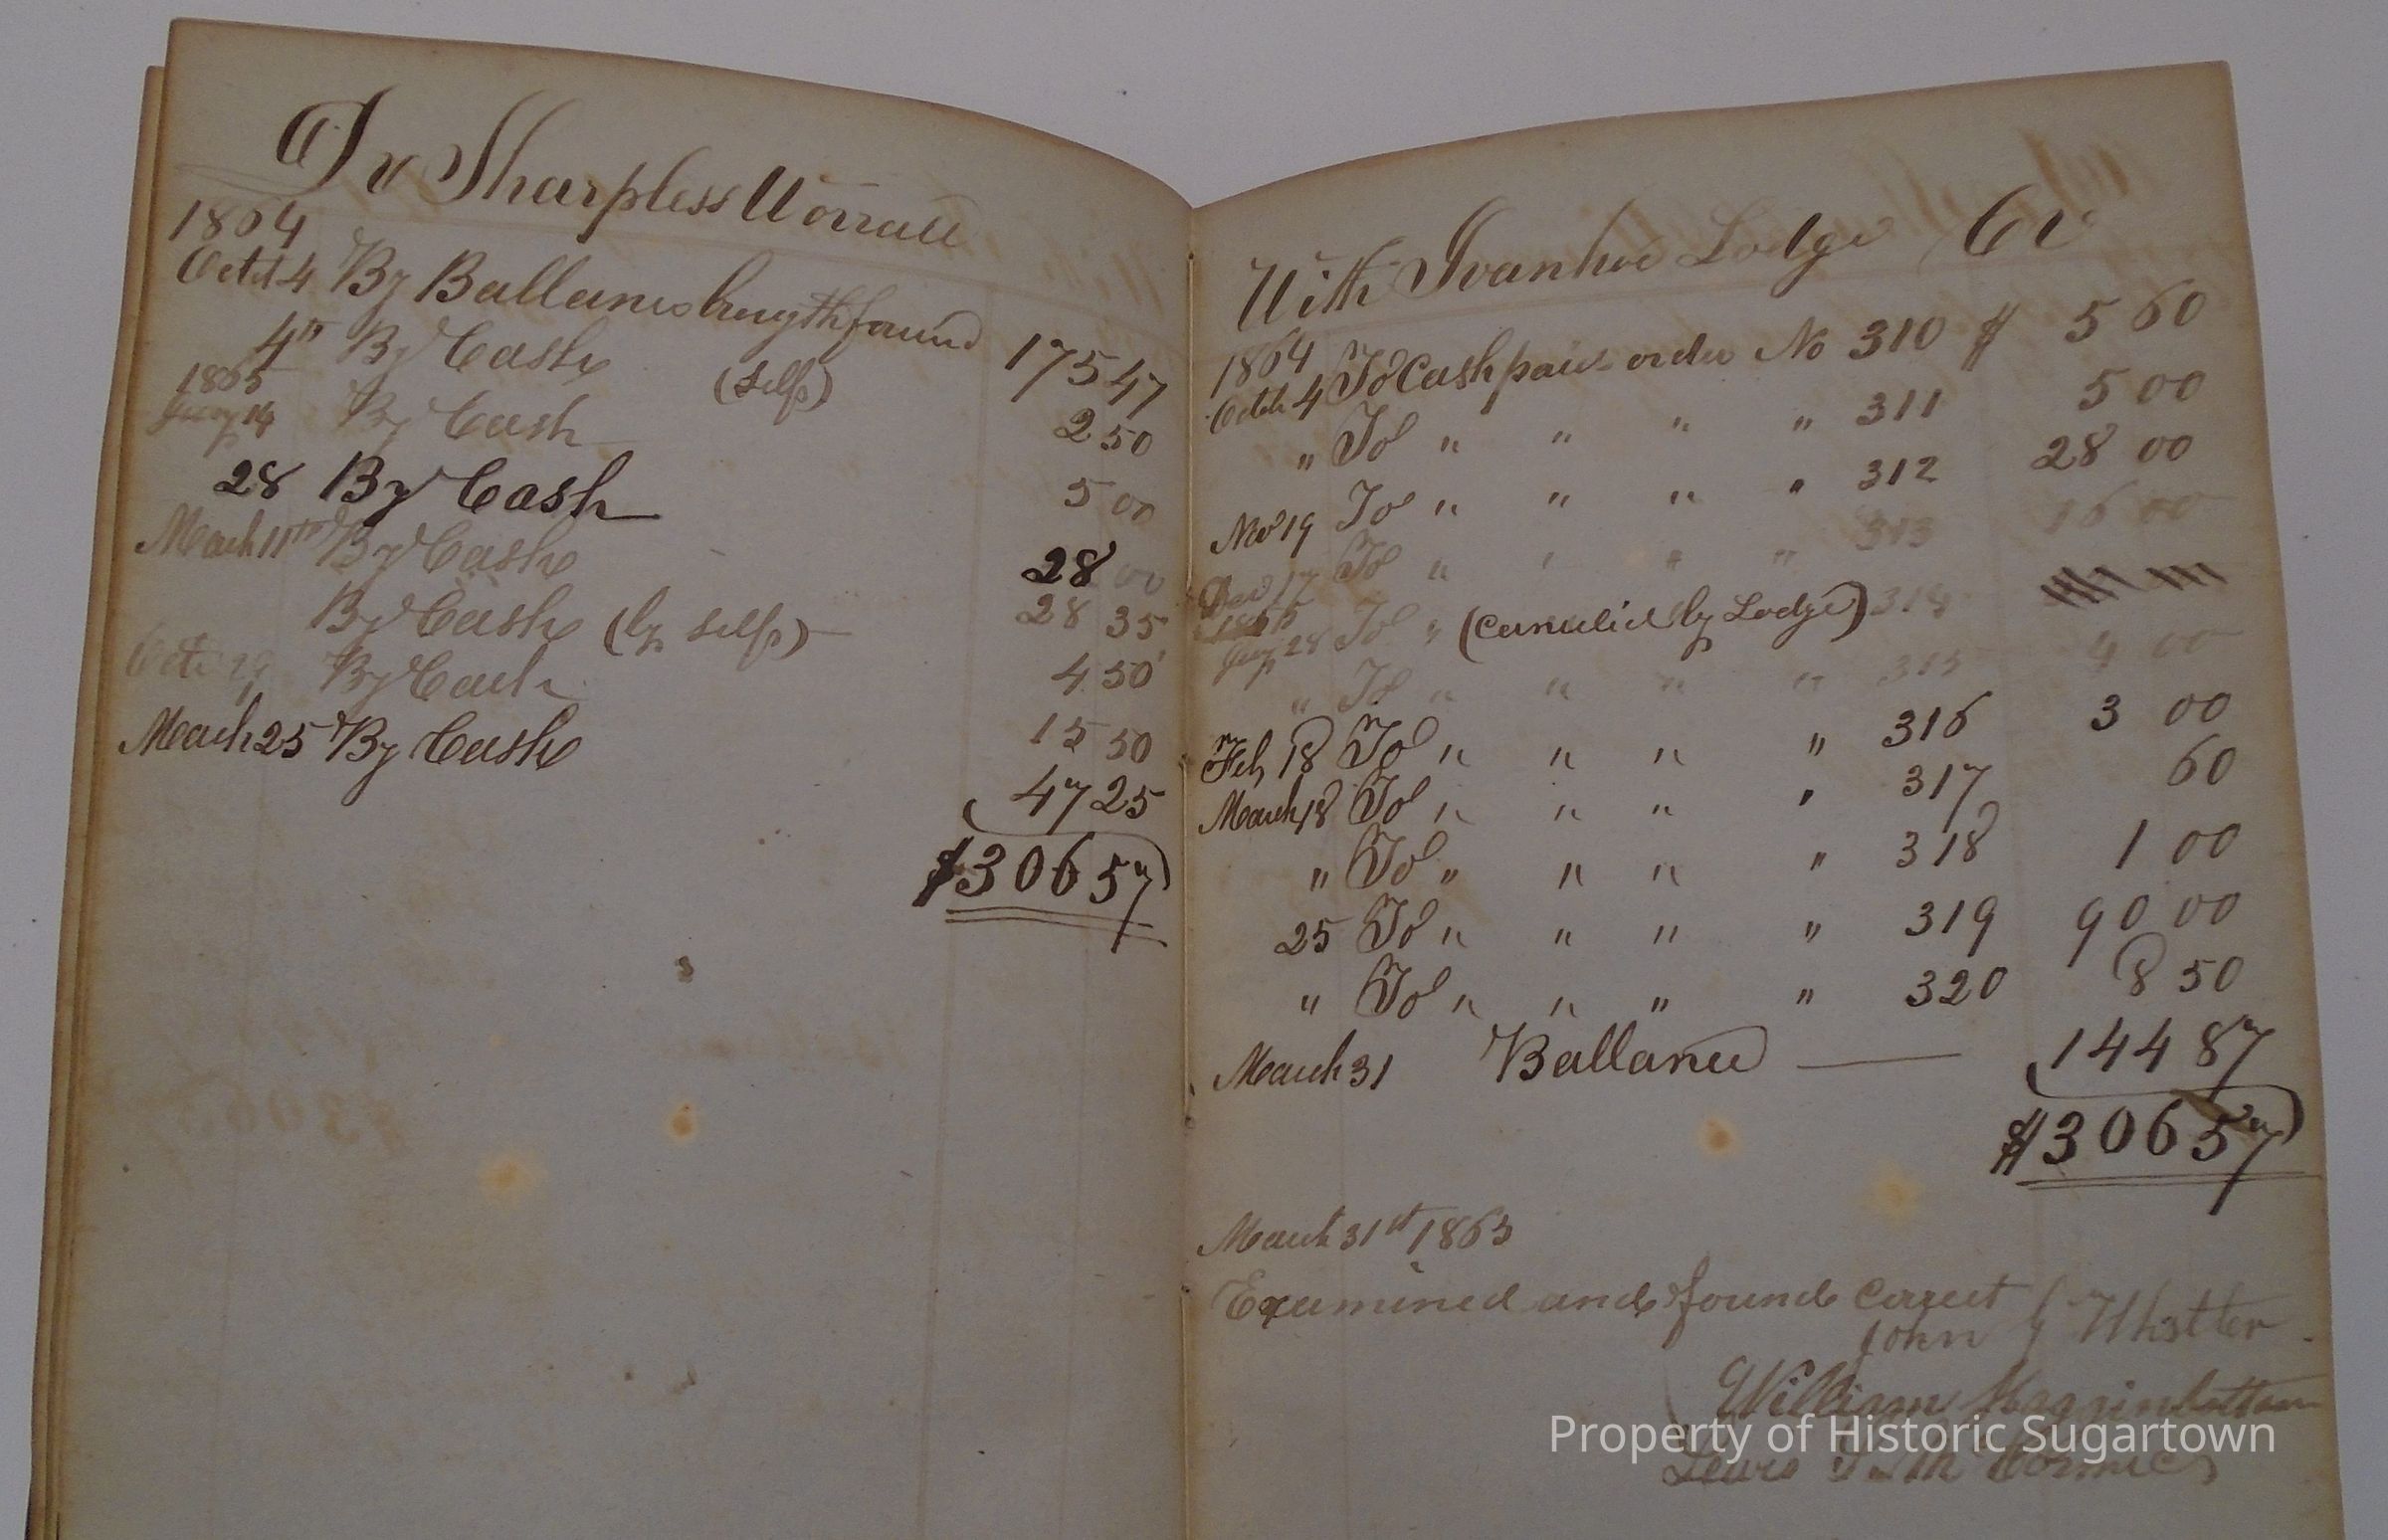 Dr Sharpless Worrall
1864
Octd 4 By Ballance brought forward 175 47
4th By Cash (self) 2 50
1865
Jany 14 By Cash 5 00
28 By Cash 28 00
March 11th By Cash 28 35
By Cash (by self) 4 50
By Cash 15 50
March 25 By Cash 47 25
$306 57
With Ivanhoe Lodge Cr
1864
Octh 4 To Cash paid order No 310 $ 5 60
" To " " " " 311 5 00
Nov 19 To " " " " 312 28 00
Dec 17 To " " " " 313 16 00
1865
Jany 28 To " (cancelled by Lodge) 314
" To " " " " 315 4 00
Feb 18 To " " " " 316 3 00
March 18 To " " " " 317 60
" To " " " " 318 1 00
25 To " " " " 319 90 00
" To " " " " 320 8 50
March 31 Ballance 144 87
$306 57
March 31st 1865
Examined and found correct
John
William
Lewis
Property of Historic Sugartown